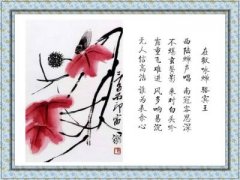 在狱咏蝉 骆宾王
西陆蝉声唱 南冠客思深
不堪玄鬓影 来对白头吟
露重飞难进 风多响易沉
无人信高洁 谁为表予心
三百石印富翁